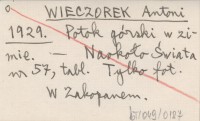 WIECZOREK Antoni
1929. Potok górski w zi-
mie. — Naokoło Świata
nr 57, tabl. Tylko fot.
W Zakopanem.